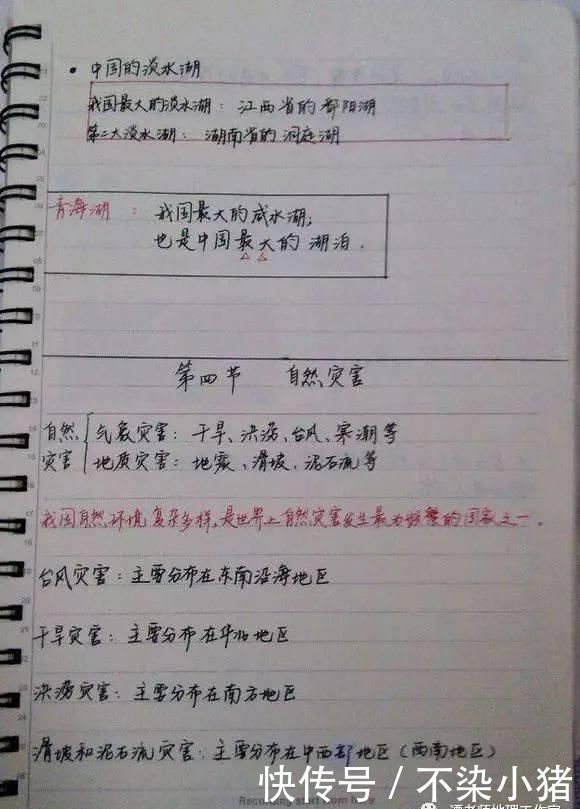 • 中国的淡水湖
我国最大的淡水湖： 江西省的鄱阳湖
第二大淡水湖： 湖南省的洞庭湖
青海湖： 我国最大的咸水湖；
也是中国最大的湖泊.
第四节 自然灾害
自然灾害
气象灾害：干旱、洪涝、台风、寒潮等
地质灾害：地震、滑坡、泥石流等
我国自然环境复杂多样,是世界上自然灾害发生最为频繁的国家之一.
台风灾害：主要分布在东南沿海地区
干旱灾害：主要分布在华北地区
洪涝灾害：主要分布在南方地区
滑坡和泥石流灾害：主要分布在中西部地区(西南地区)
快传号 / 不染小猪
Recording start from
谭老师地理工作室